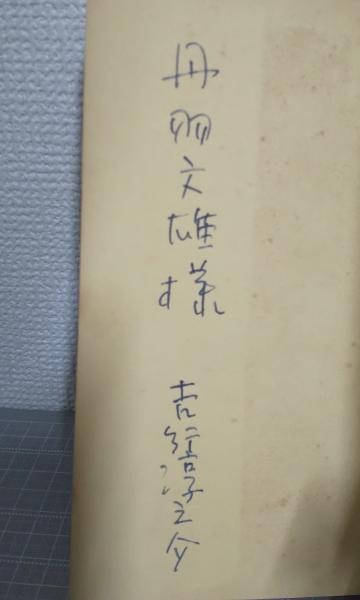 丹羽文雄様
吉行淳之介